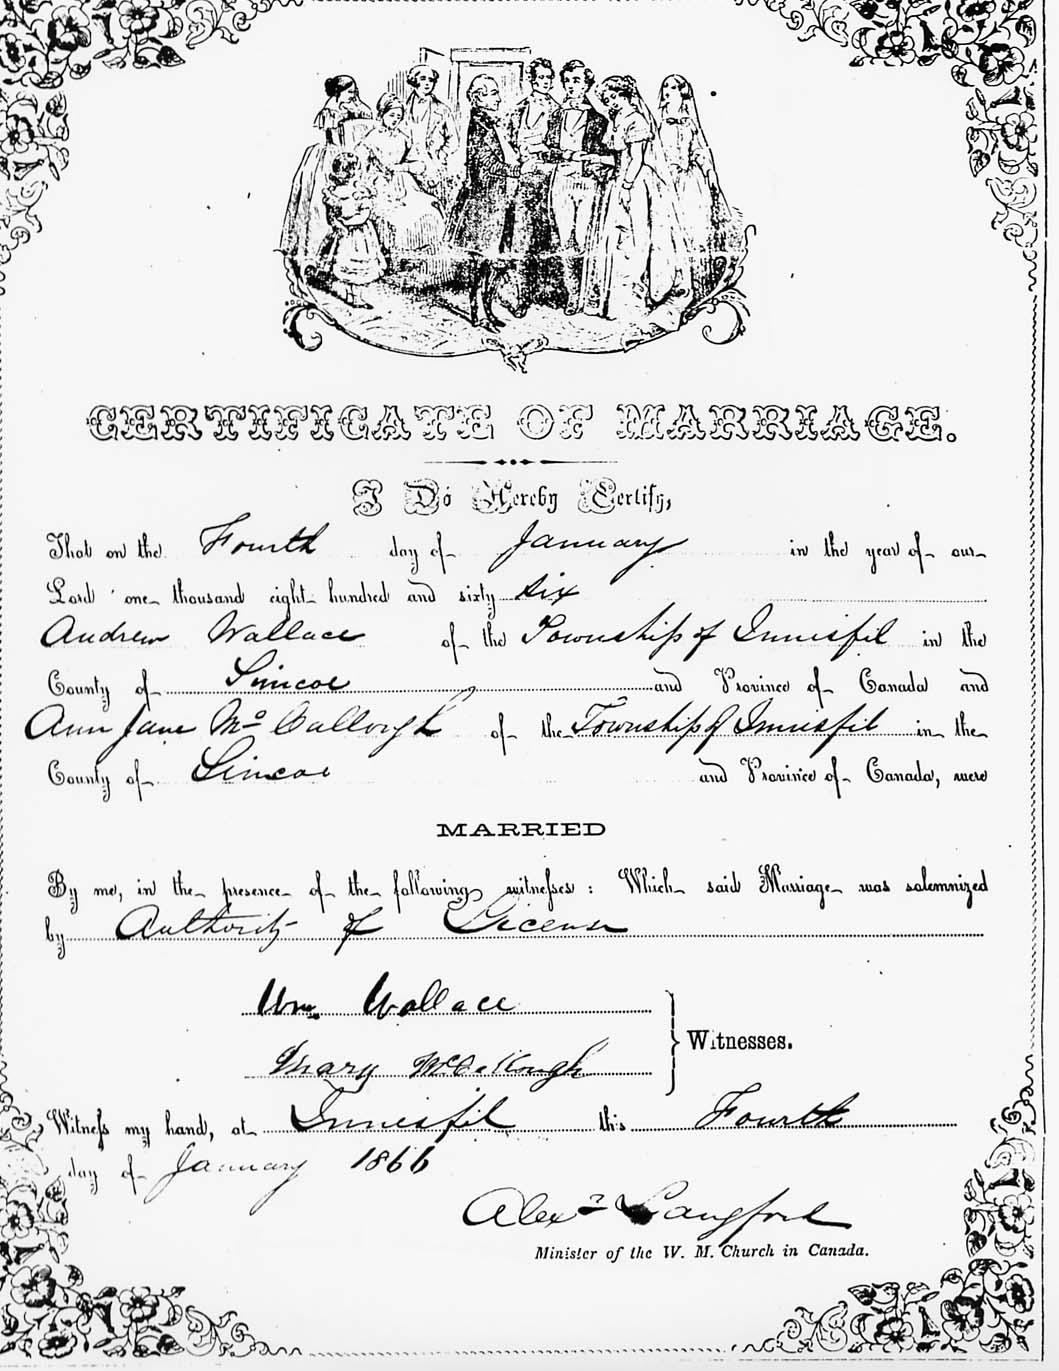 CERTIFICATE OF MARRIAGE.
I Do Hereby Certify,
That on the Fourth day of January in the year of our
Lord one thousand eight hundred and sixty six
Andrew Wallace of the Township of Innisfil in the
County of Simcoe and Province of Canada and
Ann Jane McCullough of the Township of Innisfil in the
County of Simcoe and Province of Canada, were
MARRIED
By me, in the presence of the following witnesses: Which said Marriage was solemnized
by Authority of License
Wm. Wallace
Mary McCullough
Witnesses.
Witness my hand, at Innisfil this Fourth
day of January 1866
Alexr Langford
Minister of the W. M. Church in Canada.